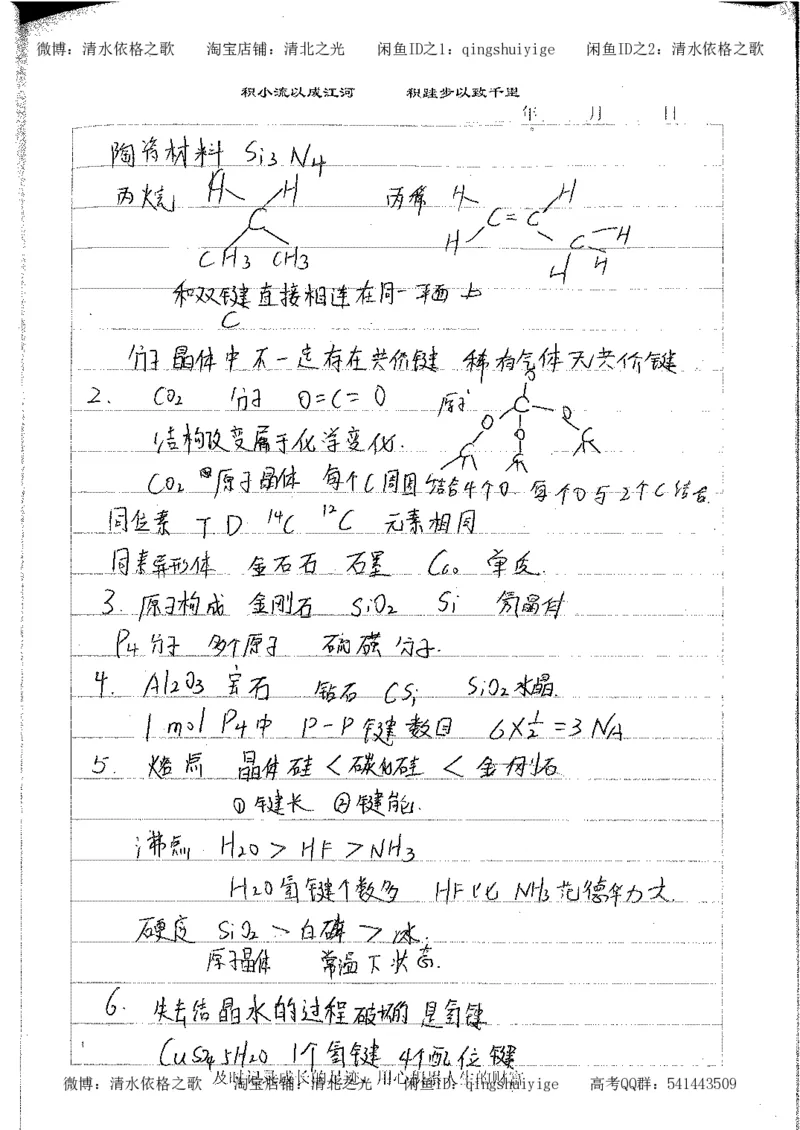 微博：清水依格之歌 淘宝店铺：清北之光 闲鱼ID之1：qingshuiyige 闲鱼ID之2：清水依格之歌
积小流以成江河 积跬步以致千里
年 月 日
陶瓷材料 Si3N4
丙烷 H H 丙稀 H H
C C=C
H C H
CH3 CH3 H H
和双键直接相连在同一平面上
C
分子晶体中不一定存在共价键 稀有气体无共价键
2. CO2 分子 O=C=O 原子 O C O O O C C C
结构改变属于化学变化.
CO2 原子晶体 每个C周围结合4个O 每个O与2个C结合.
同位素 T D 14C 12C 元素相同
同素异形体 金石石 石墨 C60 单质.
3. 原子构成 金刚石 SiO2 Si 氖晶体
P4分子 多个原子 硫磺分子.
4. Al2O3 宝石 钻石 CSi SiO2水晶.
1 mol P4中 P-P键数目 6×1/2=3NA
5. 熔点 晶体硅<碳化硅<金刚石
①键长 ②键能.
沸点 H2O>HF>NH3
H2O氢键个数多 HF比NH3范德华力大.
硬度 SiO2>白磷>冰.
原子晶体 常温下状态.
6. 失去结晶水的过程破坏的是氢键
CuSO45H2O 1个氢键 4个配位键
及时记录成长的足迹，用心积累人生的财富
微博：清水依格之歌 淘宝店铺：清北之光 闲鱼ID之1：qingshuiyige 高考QQ群：541443509